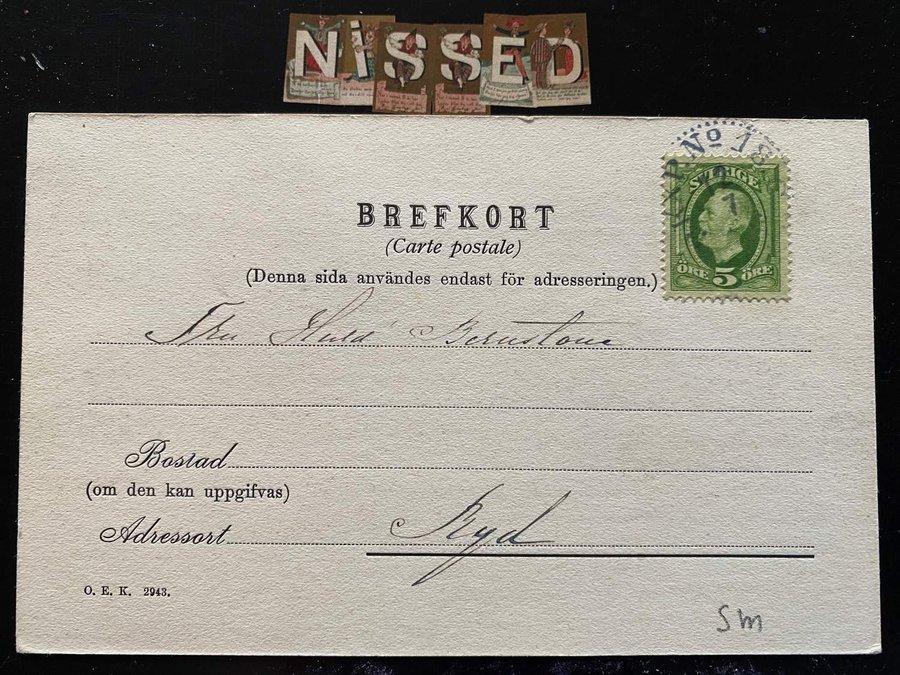 NiSSED
BREFKORT
(Carte postale)
(Denna sida användes endast för adresseringen.)
No 18
7
SVERIGE
ÖRE 5 ÖRE
Fru Huld Bernstone
Bostad
(om den kan uppgifvas)
Adressort Ryd
O. E. K. 2943.
Sm